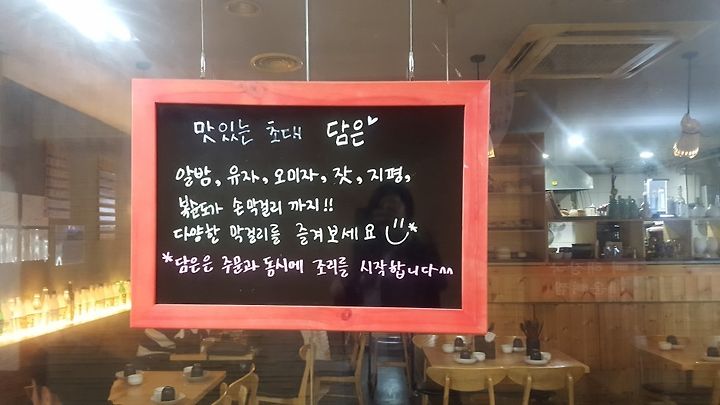 맛있는 초대 담은
알밤, 유자, 오미자, 잣, 지평,
복순도가 손막걸리 까지!!
다양한 막걸리를 즐겨보세요
*담은은 주문과 동시에 조리를 시작합니다^^